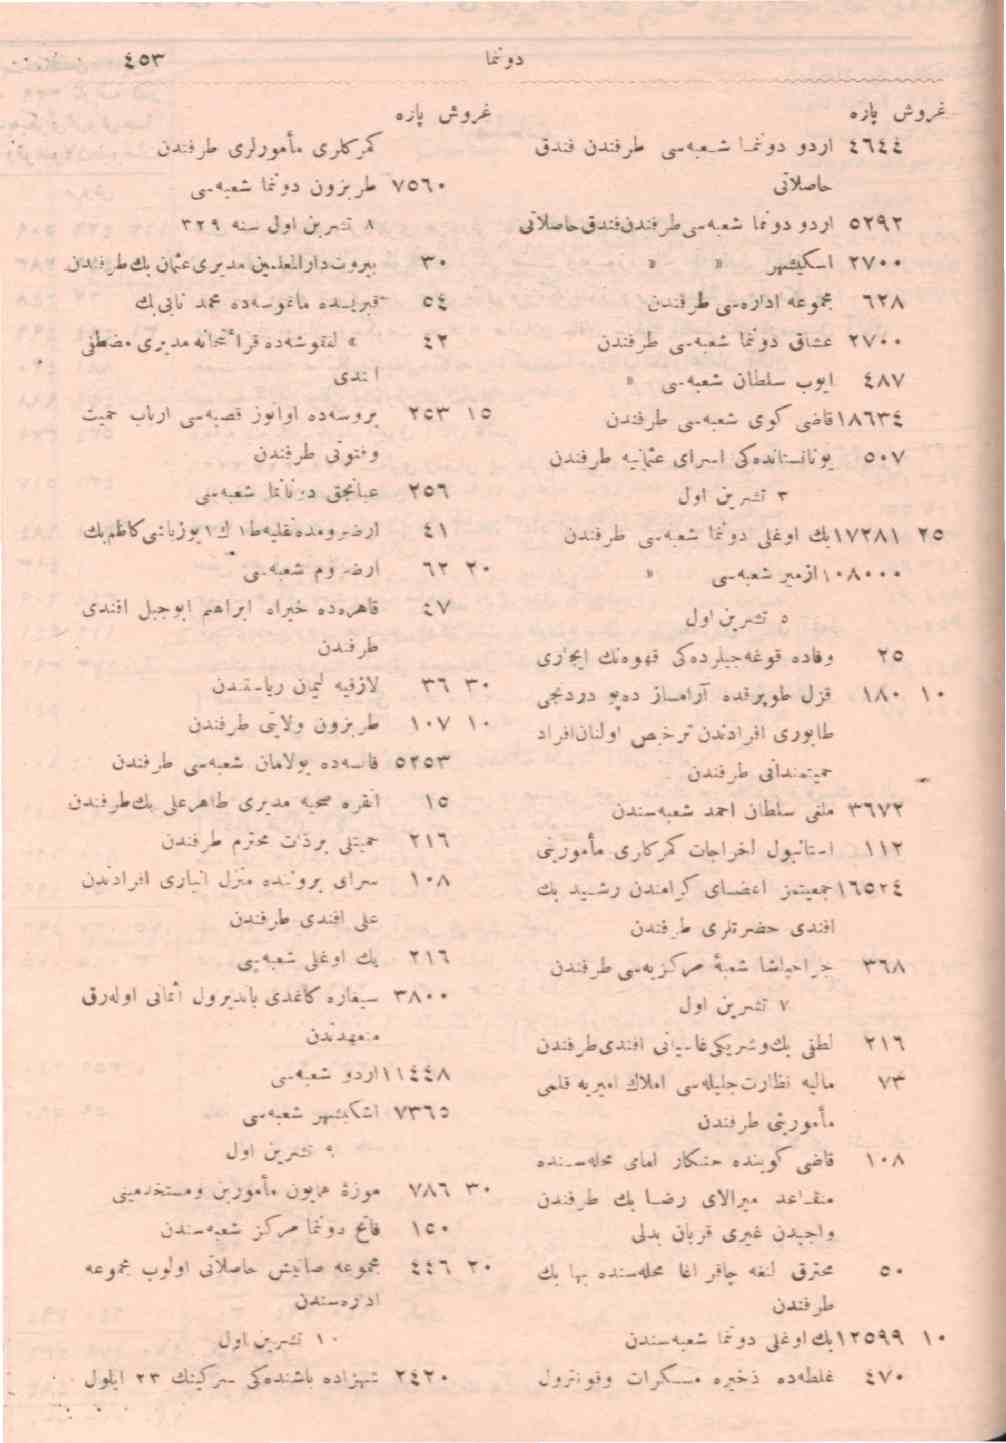 دوننما
٤٥٣
غروش پاره
٤٦٤٤ اردو دوننما شعبه‌سی طرفندن فندق
حاصلاتی
٥٢٩٢ اردو دوننما شعبه‌سی طرفندن فندق حاصلاتی
٢٧٠٠ اسكیشهر » »
٦٢٨ مجموعه اداره‌سی طرفندن
٢٧٠٠ عشاق دوننما شعبه‌سی طرفندن
٤٨٧ ایوب سلطان شعبه‌سی »
١٨٦٣٤ قاضی كوی شعبه‌سی طرفندن
٥٠٧ یونانستانده‌كی اسرای عثمانیه طرفندن
٣ تشرین اول
١٧٢٨١ ٢٥ بك اوغلی دوننما شعبه‌سی طرفندن
١٠٨٠٠٠ ازمیر شعبه‌سی »
٥ تشرین اول
٢٥ وفاده قوغه‌جیلرده‌كی قهوه‌نك ایجاری
١٨٠ ١٠ قزل طوپرقده آرامساز ده‌پو دردنجی
طابوری افرادندن ترخیص اولنان افراد
حمیتمندانی طرفندن
٣٦٧٢ ملغی سلطان احمد شعبه‌سندن
١١٢ استانبول اخراجات كمركلری مأمورینی
١٦٥٢٤ جمعیتمز اعضای كرامندن رشید بك
افندی حضرتلری طرفندن
٣٦٨ جراحپاشا شعبهٔ مركزیه‌سی طرفندن
٧ تشرین اول
٢١٦ لطفی بك وشریكی افندی طرفندن
٧٣ مالیه نظارت جلیله‌سی املاك امیریه قلمی
مأمورینی طرفندن
١٠٨ قاضی كوینده خنكار امامی محله‌سنده
متقاعد میرالای رضا بك طرفندن
واجبدن غیری قربان بدلی
٥٠ محترق لنغه چاقر اغا محله‌سنده بها بك
طرفندن
١٢٥٩٩ ١٠ بك اوغلی دوننما شعبه‌سندن
٤٧٠ غلطه‌ده ذخیره مسكرات وقونترول
غروش پاره
كمركلری مأمورلری طرفندن
٧٥٦٠ طربزون دوننما شعبه‌سی
٨ تشرین اول سنه ٣٢٩
٣٠ بیروت دارالمعلمین مدیری عثمان بك طرفندن
٥٤ قبریسده ماغوسه‌ده محمد نابی بك
٤٢ » لفقوشه‌ده قرائتخانه مدیری مصطفی
افندی
٢٥٣ ١٥ بروسه‌ده قصبه‌سی ارباب حمیت
وفتوتی طرفندن
٢٥٦ عیانجق دوننما شعبه‌سی
٤١ ارضرومده نقلیه ط١ ك١ یوزباشی كاظم بك
٦٢ ٢٠ ارضروم شعبه‌سی
٤٧ قاهره‌ده ابراهیم افندی
طرفندن
٣٦ ٣٠ لازقیه لیمان ریاستندن
١٠٧ ١٠ طربزون ولایتی طرفندن
٥٢٥٣ فاتسه‌ده بولامان شعبه‌سی طرفندن
١٥ انقره صحیه مدیری طاهر علی بك طرفندن
٢١٦ حمیتلی بر ذات محترم طرفندن
١٠٨ سرای بروننده منزل انباری افرادندن
علی افندی طرفندن
٢١٦ بك اوغلی شعبه‌سی
٣٨٠٠ سیغاره كاغدی باندیرول اثمانی اوله‌رق
متعهدندن
١١٤٤٨ اردو شعبه‌سی
٧٣٦٥ اسكیشهر شعبه‌سی
٩ تشرین اول
٧٨٦ ٣٠ موزهٔ همایون مأمورین ومستخدمینی
١٥٠ فاتح دوننما مركز شعبه‌سندن
٤٤٦ ٢٠ مجموعه صاتیش حاصلاتی اولوب مجموعه
اداره‌سندن
١٠ تشرین اول
٢٤٢٠ شهزاده باشنده‌كی سركینك ٢٣ ایلول